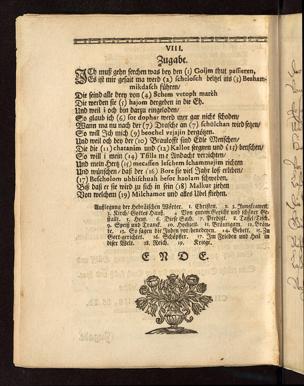 VIII.
Zugabe.
ICh muß gehn forchen was bey den (1) Goijm thut passieren,
Es ist mir gesait ma werd (2) scheloscho bethel ins (3) Beshammikdasch führen/
Die seind alle drey von (4) Schem vetoph marêh
Die werden sie (5) hajom dergeben in die Eh.
Und weil i och bin darzu eingeladen/
So glaub ich (6) for dophar werd mer gar nicht schaden/
Wann ma nu nach der (7) Drosche an (7) schülchan wird setzen/
So will Ich mich (9) beochel vejajin dergötzen.
Und weil och bey der (10) Braulofft sind Edle Menschen/
Die die (11) chatanim und (12) Kallos segnen und (13) benschen/
So will i mein (14) Tfilla mit Andacht verrichten/
Und mein Herz
und wünschen/ daß der (16) Bore sie viel Jahr loß erleben/
(17) Bescholom ubbischuah besor haolam schweben.
Biß daß er sie wird zu sich in sein (18) Malkus ziehen
Von welchem (19) Milchamos und alles Übel fliehen.
Auslegung der Hebräischen Wörter. 1. Christen. 2. 3. Jungfrauen.
3. Kirch/ Gottes Hauß. 4. Von gutem Gerücht und schöner Gestalt.
5. Heut. 6. Diese Sach. 7. Predigt. 8. Tafel/ Tisch.
9. Speiß und Tranck. 10. Hochzeit. 11. Bräutigam. 12. Bräute.
13. So sagen die Juden vor benedeyen. 14. Gebett. 15. Zu
Gott gerichtet. 16. Schöpffer. 17. Im Frieden und Heil in
dieser Welt. 18. Reich. 19. Kriege.
E N D E.